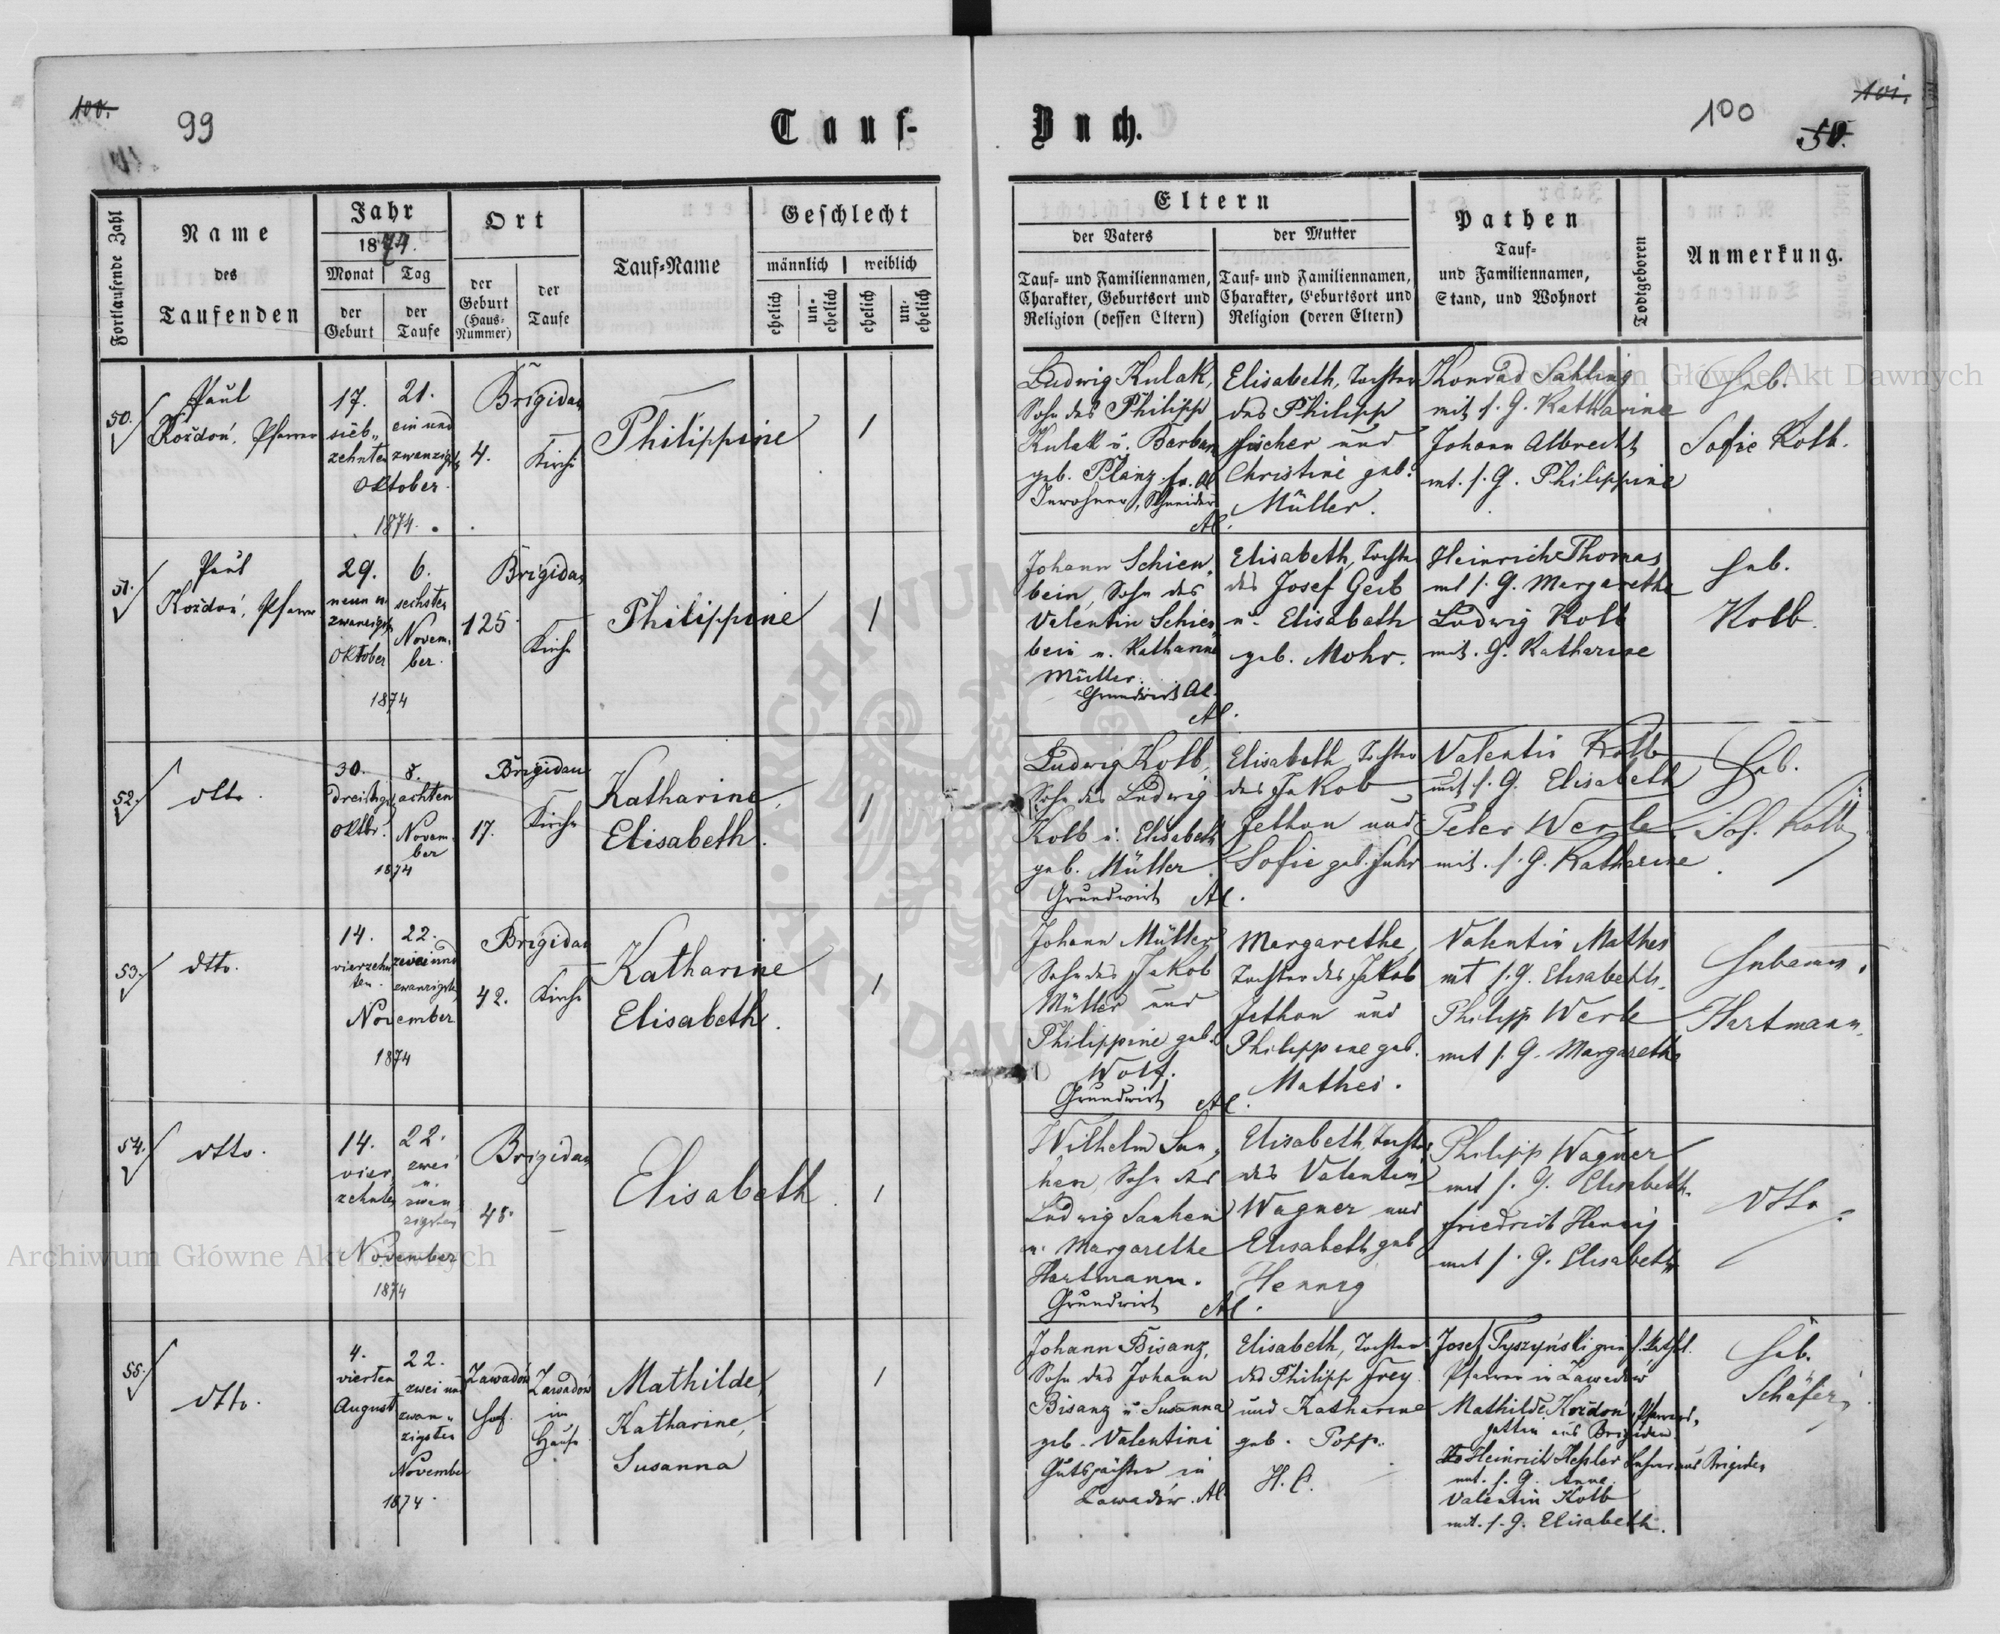 100.
99
Tauf-
Buch.
100
101.
50.
Fortlaufende Zahl
Name
des
Taufenden
Jahr
1874.
Monat
Tag
der
Geburt
der
Taufe
Ort
der
Geburt
(Haus-
Nummer)
der
Taufe
Tauf-Name
Geschlecht
männlich
weiblich
ehelich
un-
ehelich
ehelich
un-
ehelich
Eltern
der Vaters
Tauf- und Familiennamen,
Charakter, Geburtsort und
Religion (dessen Eltern)
der Mutter
Tauf- und Familiennamen,
Charakter, Geburtsort und
Religion (deren Eltern)
Pathen
Tauf-
und Familiennamen,
Stand, und Wohnort
Todtgeboren
Anmerkung.
50.
Paul
Koždoń, Pfarrer
17.
sieb-
zehnten
21.
ein und
zwanzigst
Oktober.
1874.
Brigidau
4.
Kirche
Philippine
1
Ludwig Kulak,
Sohn des Philipp
Kulak u. Barbara
geb. Planz
Inwohner, Schneider
Al.
Elisabeth, Tochter
des Philipp
Fischer und
Christine geb.
Müller.
Konrad Sahling
mit s. G. Katharine
Johann Albrecht
mt. s. G. Philippine
Heb.
Sofie Kolb.
51.
Paul
Koždoń, Pfarrer
29.
neun u.
zwanzigst
Oktober
6.
sechsten
Novem-
ber.
1874
Brigidau
125
Kirche
Philippine
1
Johann Schien-
bein, Sohn des
Valentin Schien-
bein u. Katharina
Müller.
Grundwirt Al.
Al.
Elisabeth, Tochter
des Josef Gerb
u. Elisabeth
geb. Mohr.
Heinrich Thomas
mt s. G. Margarethe
Ludwig Kolb
mit. G. Katharine
Heb.
Kolb.
52.
dtto.
30.
dreißigst
Oktbr.
8.
achten
Novem-
ber
1874
Brigidau
17.
Kirche
Katharine,
Elisabeth.
1
Ludwig Kolb,
Sohn des Ludwig
Kolb u. Elisabeth
geb. Müller
Grundwirt Al.
Elisabeth, Tochter
des Jakob
Jethon und
Sofie geb. Fuhr
Valentin Kolb
mit s. G. Elisabeth
Peter Werle
mit. s. G. Katharine
Heb.
Sof. Kolb
53.
dtto.
14.
vierzehn
ten.
22.
zwei und
zwanzigsten
November
1874
Brigidau
42.
Kirche
Katharine
Elisabeth.
1
Johann Müller
Sohn des Jakob
Müller und
Philippine geb.
Wolf.
Grundwirt Al.
Margarethe,
Tochter des Jakob
Jethon und
Philippine geb.
Mathes.
Valentin Mathes
mt s. G. Elisabeth.
Philipp Werle
mit s. G. Margareth.
Hebamme.
Hartmann.
54.
dtto.
14.
vier
zehnten
22.
zwei
u.
zwan
zigsten
November
1874
Brigidau
48.
—
Elisabeth.
1
Wilhelm San-
hen, Sohn des
Ludwig Sanhen
u. Margarethe
Hartmann.
Grundwirt Al.
Elisabeth, Tochter
des Valentin
Wagner und
Elisabeth geb
Hennig
Philipp Wagner
mit s. G. Elisabeth.
Friedrich Hennig
mit s. G. Elisabeth
dtto.
55.
dtto.
4.
vierten
August
22.
zwei und
zwan-
zigsten
November
1874.
Zawadów
Hof.
Zawadów
im
Hause
Mathilde,
Katharine,
Susanna
1
Johann Bisanz,
Sohn des Johann
Bisanz u Susanna
geb. Valentini
Gutspächter in
Zawadów. Al.
Elisabeth, Tochter
des Philipp Frey
und Katharine
geb. Popp.
H. C.
Josef Tyszyński
Pfarrer in Zawadów
Mathilde Koždoń, Pfarrers-
gattin aus Brigidau
Heinrich Kessler Lehrer aus Brigidau
mt. s. G. Anna.
Valentin Kolb
mit. s. G. Elisabeth.
Heb.
Schäfer
Archiwum Główne Akt Dawnych
Archiwum Główne Akt Dawnych
ARCHIWUM
AKT DAWNYCH